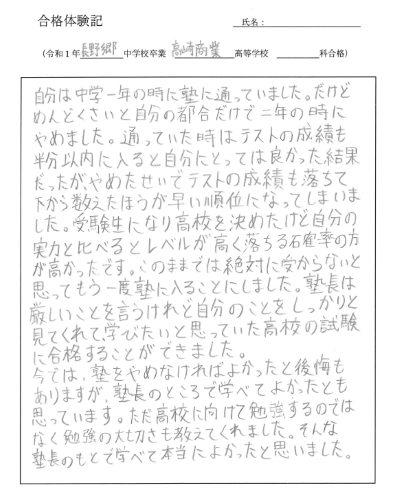 合格体験記
氏名：
（令和１年 長野郷 中学校卒業 高崎商業 高等学校 科合格）
自分は中学一年の時に塾に通っていました。だけど
めんどくさいと自分の都合だけで二年の時に
やめました。通っていた時はテストの成績も
半分以内に入ると自分にとっては良かった結果
だったが、やめたせいでテストの成績も落ちて
下から数えたほうが早い順位になってしまいま
した。受験生になり高校を決めたけど自分の
実力と比べるとレベルが高く落ちる確率の方
が高かったです。このままでは絶対に受からないと
思ってもう一度塾に入ることにしました。塾長は
厳しいことを言うけれど自分のことをしっかりと
見てくれて学びたいと思っていた高校の試験
に合格することができました。
今では、塾をやめなければよかったと後悔も
ありますが、塾長のところで学べてよかったとも
思っています。ただ高校に向けて勉強するのでは
なく勉強の大切さも教えてくれました。そんな
塾長のもとで学べて本当によかったと思いました。